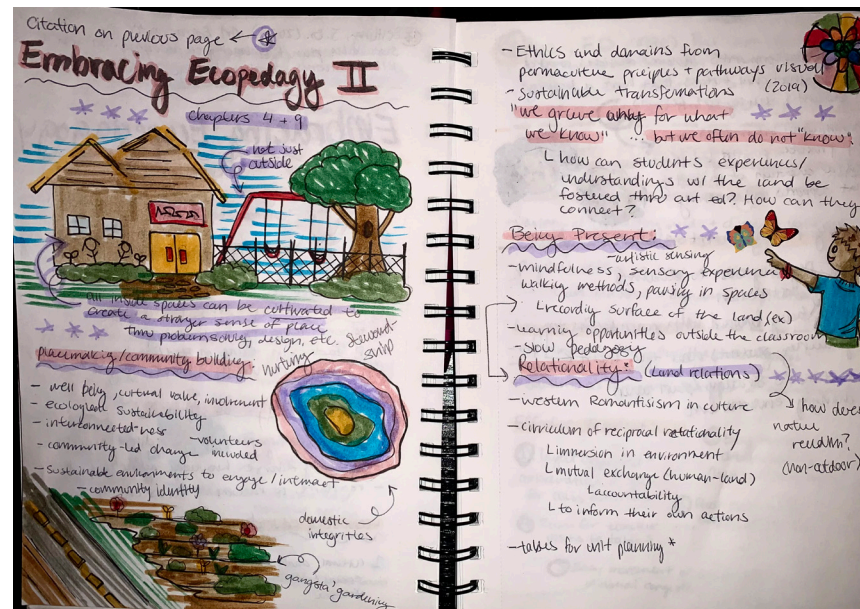 Citation on previous page ←
Embracing Ecopedagy II
chapters 4 + 9
not just
outside
all inside spaces can be cultivated to
create a stronger sense of place
thru problumsolvig, design, etc.
placemaking/community building:
nurturing
steward-
ship
- well being, cultural value, involvement
- ecological sustainability
- interconnected-ness
- volunteers
included
- community-led change
- Sustainable environments to engage/interact
- community identity
domestic
integrities
"gangsta" gardening
- Ethics and domains from
permaculture priciples + pathways visual
- Sustainable transformations (2019)
"we grieve only for what
we know" ... but we often do not "know".
how can students experiences/
understandings w/ the land be
fostered thru art ed? How can they
connect?
Being Present:
- artistic sensing
- mindfulness, sensory experience
walking methods, pausing in spaces
recording surface of the land (ex)
- learning opportunities outside the classroom
- slow pedagogy
Relationality: (Land relations)
- western Romantisism in culture
how does
nature
(non-outdoor)
- cirriculum of reciprocal relationality
immersion in environment
mutual exchange (human-land)
accountability
to inform their own actions
- tables for unit planning *